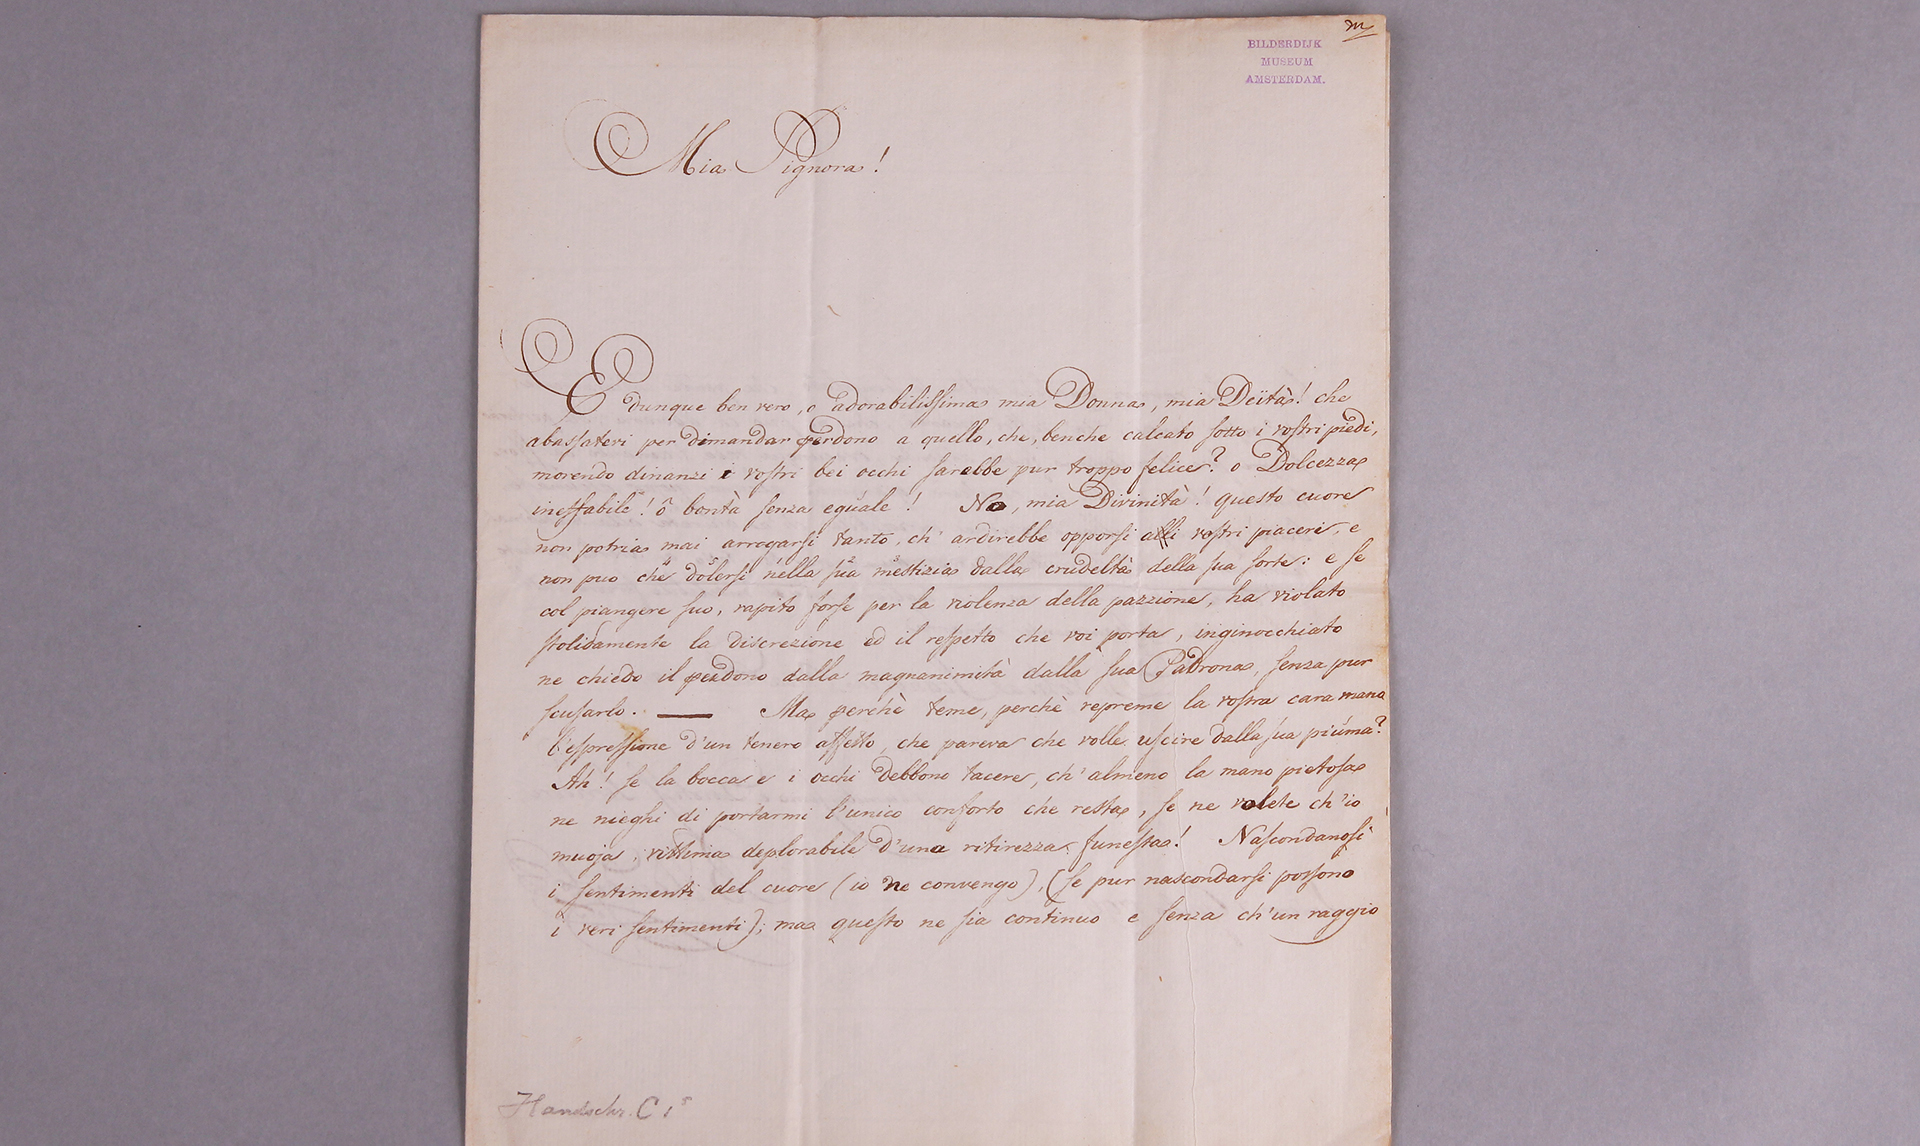 BILDERDIJK
MUSEUM
AMSTERDAM.
Mia Signora!
E dunque ben vero, o adorabilissima mia Donna, mia Deïtà! che
abassatevi per dimandar perdono a quello, che, benche calcato sotto i vostri piedi,
morendo dinanzi i vostri bei occhi sarebbe pur troppo felice? o Dolcezza
ineffabile! ô bontà senza eguale! No, mia Divinità! questo cuore
non potria mai arrogarsi tanto, ch' ardirebbe opporsi alli vostri piaceri, e
non puo che dolersi nella sua mestizia dalla crudeltà della sua sorte: e se
col piangere suo, rapito forse per la violenza della pazzione, ha violato
stolidamente la discrezione ed il respetto che voi porta, inginocchiato
ne chiedo il perdono dalla magnanimità dalla sua Padrona, senza pur
scusarlo. — Ma perchè teme, perchè repreme la vostra cara mana
l'espressione d'un tenero affetto, che pareva che volle uscire dalla sua piúma?
Ah! se la bocca e i occhi debbono tacere, ch' almeno la mano pietosa
ne nieghi di portarmi l'unico conforto che resta, se ne volete ch'io
muoja, vittima deplorabile d'una ritirezza funesta! Nascondansi
i sentimenti del cuore (io ne convengo), (se pur nascondarsi possono
i veri sentimenti); ma questo ne sia continuo e senza ch'un raggio
Handschr. C 1⁵